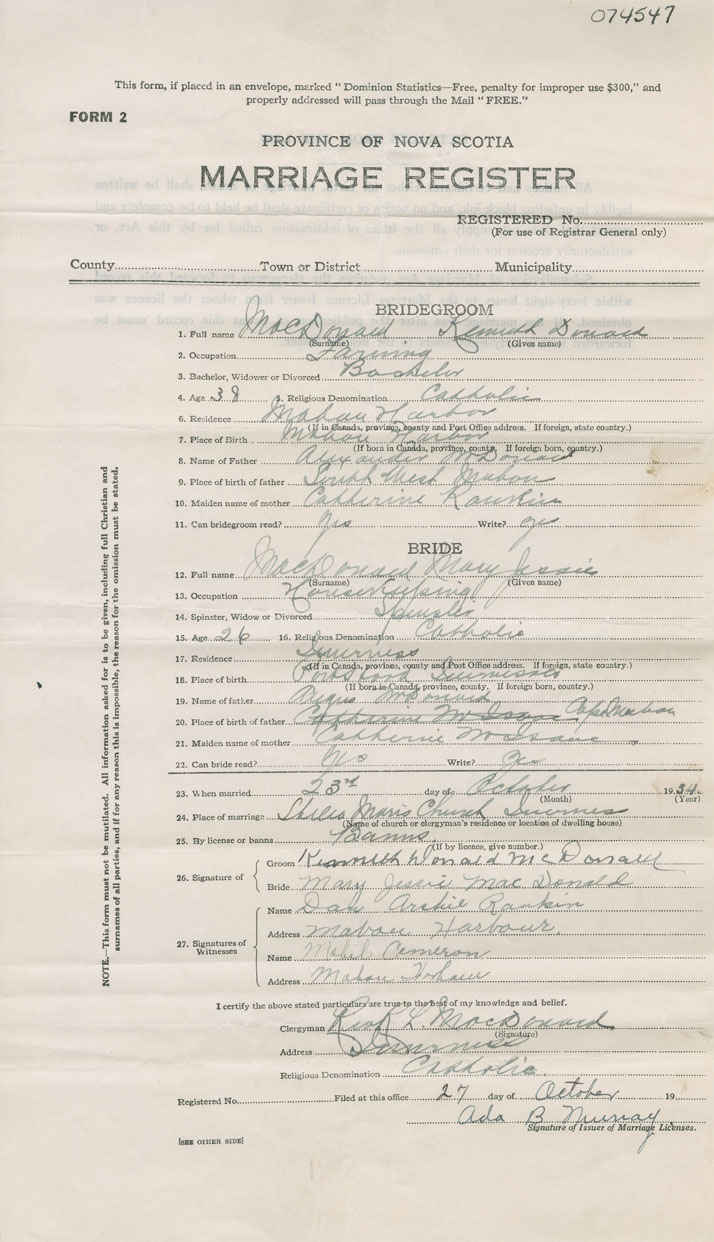 074547
This form, if placed in an envelope, marked "Dominion Statistics—Free, penalty for improper use $300," and
properly addressed will pass through the Mail "FREE."
FORM 2
PROVINCE OF NOVA SCOTIA
MARRIAGE REGISTER
REGISTERED No.
(For use of Registrar General only)
County Town or District Municipality
BRIDEGROOM
1. Full name MacDonald Kenneth Donald
(Surname) (Given name)
2. Occupation Farming
3. Bachelor, Widower or Divorced Bachelor
4. Age 38 5. Religious Denomination Catholic
6. Residence Mabou Harbor
(If in Canada, province, county and Post Office address. If foreign, state country.)
7. Place of Birth Mabou Harbor
(If born in Canada, province, county. If foreign born, country.)
8. Name of Father Alexander McDonald
9. Place of birth of father South West Mabou
10. Maiden name of mother Catherine Rankin
11. Can bridegroom read? yes Write? yes
BRIDE
12. Full name MacDonald Mary Jessie
(Surname) (Given name)
13. Occupation Housekeeping
14. Spinster, Widow or Divorced Spinster
15. Age 26 16. Religious Denomination Catholic
17. Residence Inverness
(If in Canada, province, county and Post Office address. If foreign, state country.)
18. Place of birth Port Hood
(If born in Canada, province, county. If foreign born, country.)
19. Name of father Angus McDonald
20. Place of birth of father Catherine McIsaac Cape Mabou
21. Maiden name of mother Catherine McIsaac
22. Can bride read? yes Write? yes
23. When married 23rd day of October 1934.
(Month) (Year)
24. Place of marriage Stella Maris Church
(Name of church or clergyman's residence or location of dwelling house)
25. By license or banns Banns
(If by licence, give number.)
26. Signature of Groom Kenneth Donald McDonald
Bride Mary Jessie Mac Donald
27. Signatures of Witnesses Name Dan Archie Rankin
Address Mabou Harbour.
Name Cameron
Address Mabou Harbour
I certify the above stated particulars are true to the best of my knowledge and belief.
Clergyman MacDonald
(Signature)
Address Inverness
Religious Denomination Catholic
Registered No. Filed at this office 27 day of October 19
Ada B Murray
Signature of Issuer of Marriage Licenses.
[SEE OTHER SIDE]
NOTE.—This form must not be mutilated. All information asked for is to be given, including full Christian and
surnames of all parties, and if for any reason this is impossible, the reason for the omission must be stated.